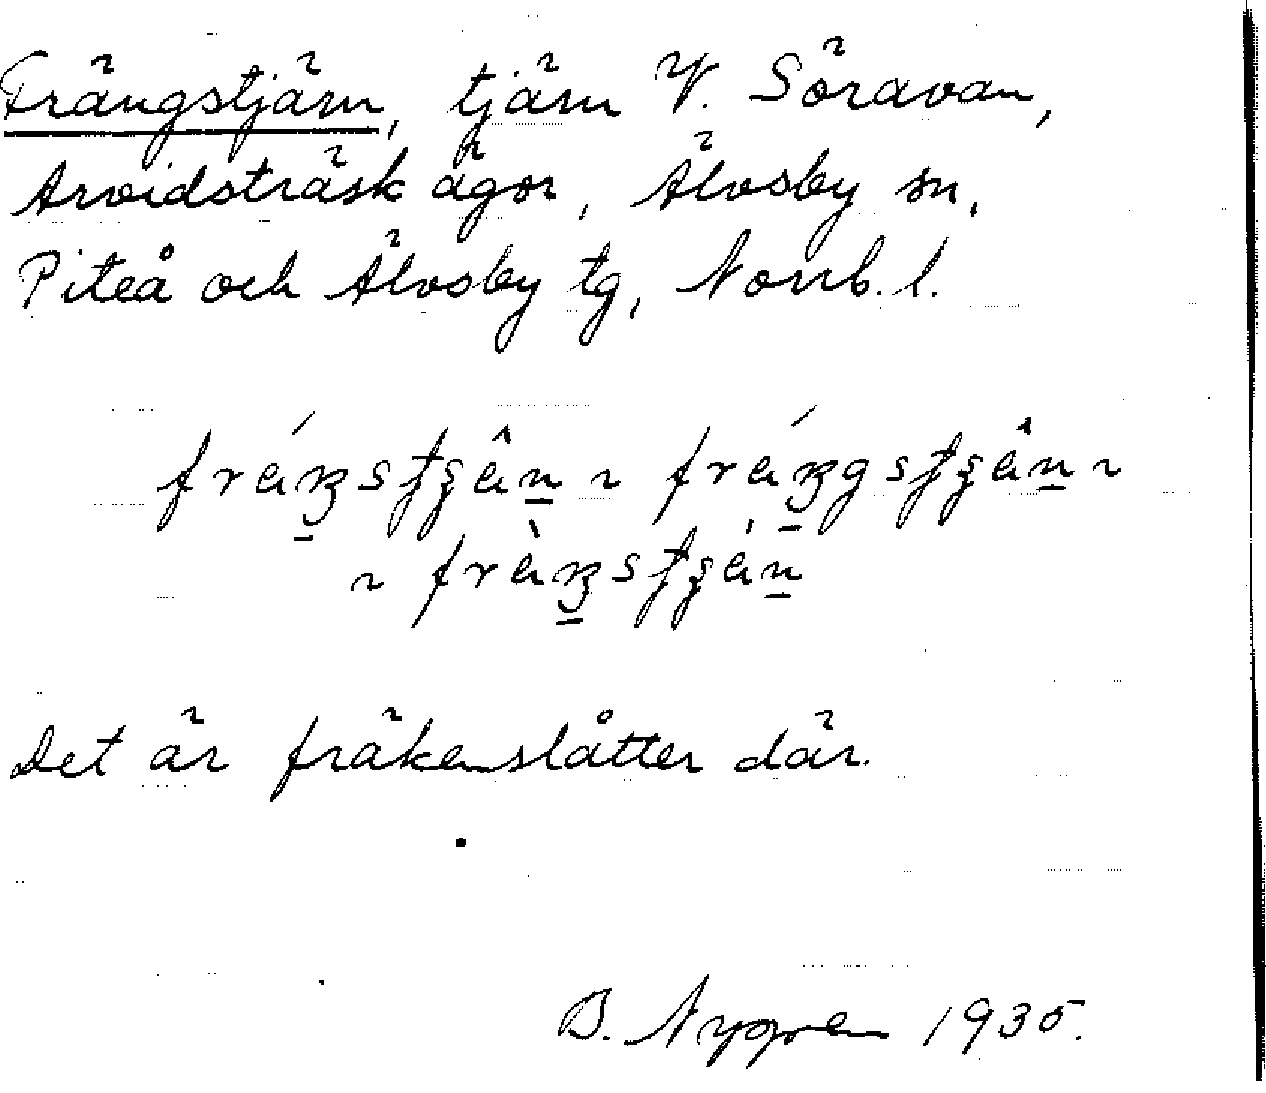 Frängstjärn, tjärn V. Söravan,
Arvidsträsk ägor, Älvsby sn,
Piteå och Älvsby tg, Norrb. l.
Det är fräkenslåtter där.
B. Nygren 1935.